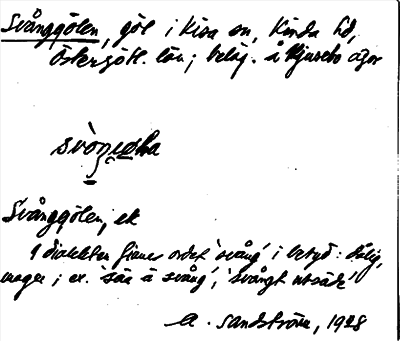 Svånggölen, göl i Kisa sn, Kinda hd,
Östergötl. län; beläg. å Kjusebo ägor
Svånggölen, ek
I dialekten finnes ordet 'svång' i betyd: dålig,
mager; ex. 'säa ä svång', 'svångt utsäde'
A. Sandström, 1928